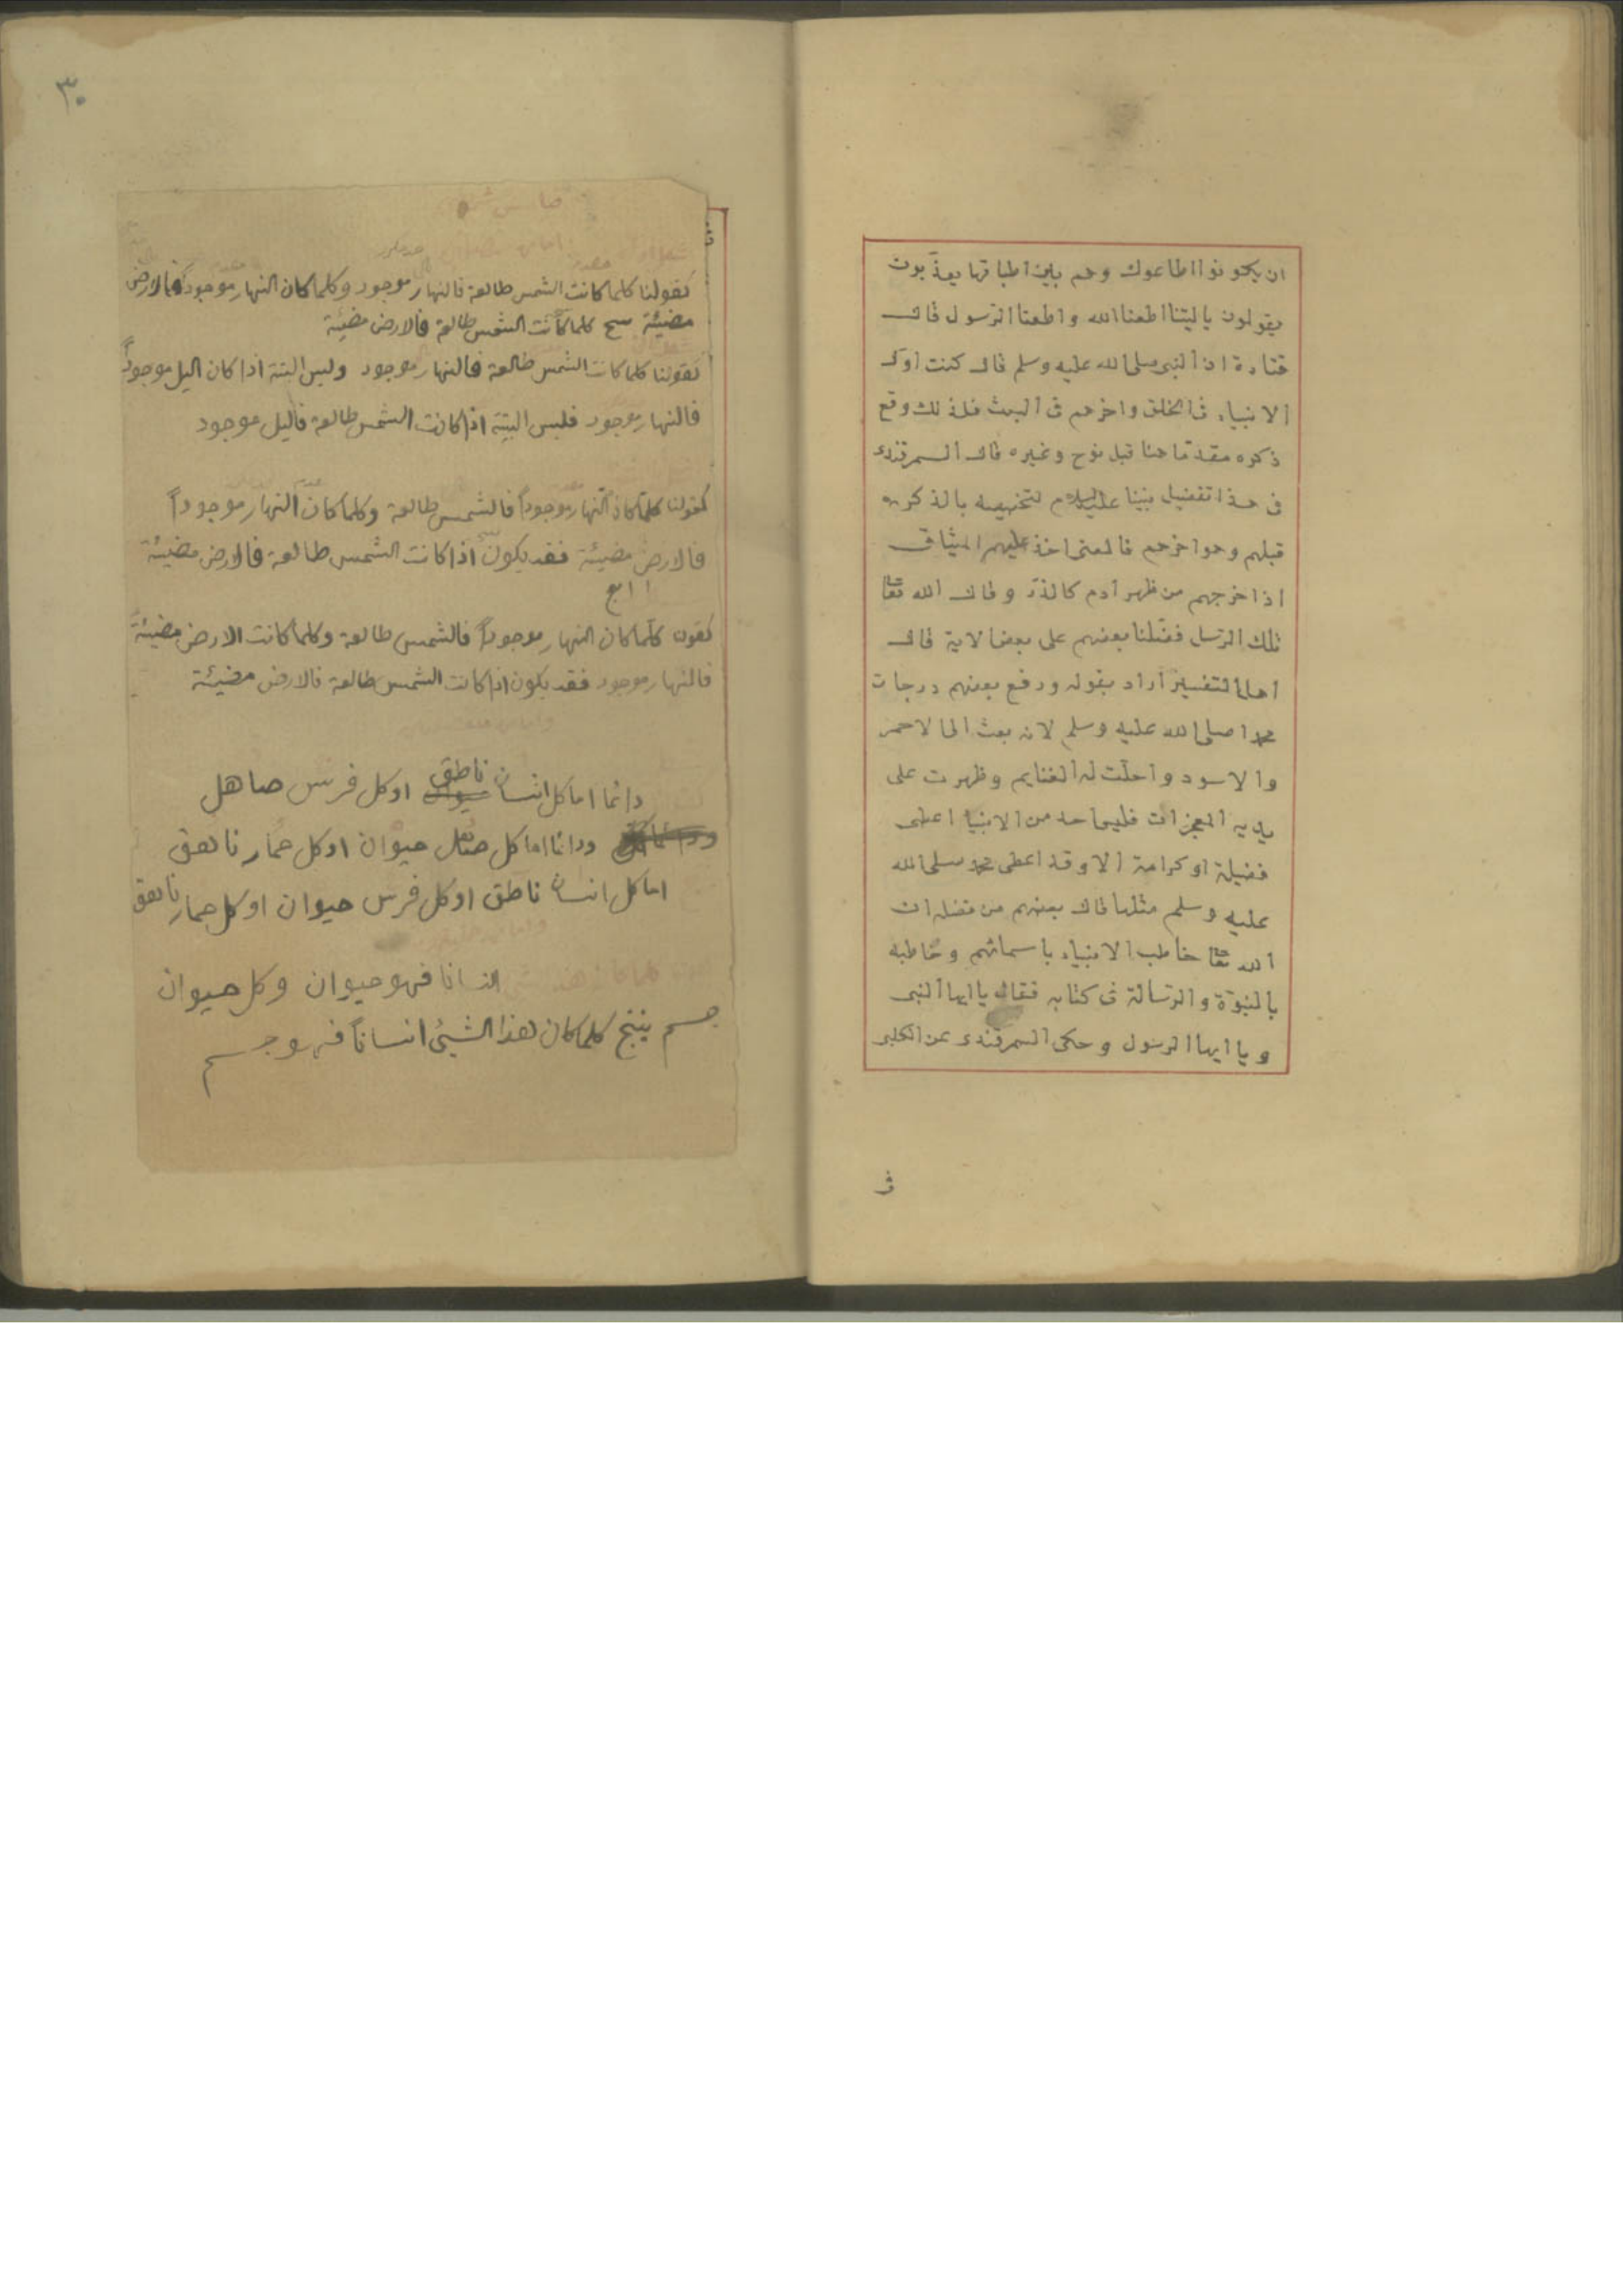 ان يكونوا اطاعوك وهم بين اطباقها يعذّبون
يقولون يا ليتنا اطعنا الله واطعنا الرسول قال
قتادة ان النبى صلى الله عليه وسلم قال كنت اول
الانبياء فى الخلق واخرهم فى البعث فلذلك وقع
ذكره مقدّما هنا قبل نوح وغيره قال السمرقندى
فى هذا تفضيل نبينا عليه السلام لتخصيصه بالذكر
قبلهم وهو اخرهم فالمعنى اخذ عليهم الميثاق
اذا خرجهم من ظهر آدم كالذرّ وقال الله تعا
تلك الرّسل فضّلنا بعضهم على بعض الاية قال
اهل التفسير اراد بقوله ورفع بعضهم درجات
محمدا صلى الله عليه وسلم لانه بعث الى الاحمر
والاسود واحلّت له الغنايم وظهرت على
يديه المعجزات فليس احد من الانبيا اعطى
فضيلة او كرامة الا وقد اعطى محمد صلى الله
عليه وسلم مثلها قال بعضهم من فضله ان
الله تعا خاطب الانبياء باسمائهم وخاطبه
بالنبوّة والرّسالة فى كتابه فقال يا ايها النبى
ويا ايها الرسول وحكى السمرقندى عن الكلبى
فى
٣٠
كقولنا كلما كانت الشمس طالعة فالنهار موجود وكلما كان النهار موجوداً فالارض
مضيئة ينتج كلما كانت الشمس طالعة فالارض مضيئة
كقولنا كلما كانت الشمس طالعة فالنهار موجود وليس البتة اذا كان اليل موجوداً
فالنهار موجود فليس البتة اذا كانت الشمس طالعة فاليل موجود
كقولنا كلّما كان النّهار موجوداً فالشمس طالعة وكلما كان النهار موجوداً
فالارض مضيئة فقد يكون اذا كانت الشمس طالعة فالارض مضيئة
كقون كلّما كان النهار موجوداً فالشمس طالعة وكلما كانت الارض مضيئة
فالنهار موجود فقد يكون اذا كانت الشمس طالعة فالارض مضيئة
دائما اما كل انسان ناطق اوكل فرس صاهل
ودائما اما كل صاهل حيوان اوكل حمار ناهق
اما كل انسان ناطق اوكل فرس حيوان اوكل حمار ناهق
انسانا فهو حيوان وكل حيوان
جسم ينتج كلما كان هذا الشيئ انساناً فهو جسم